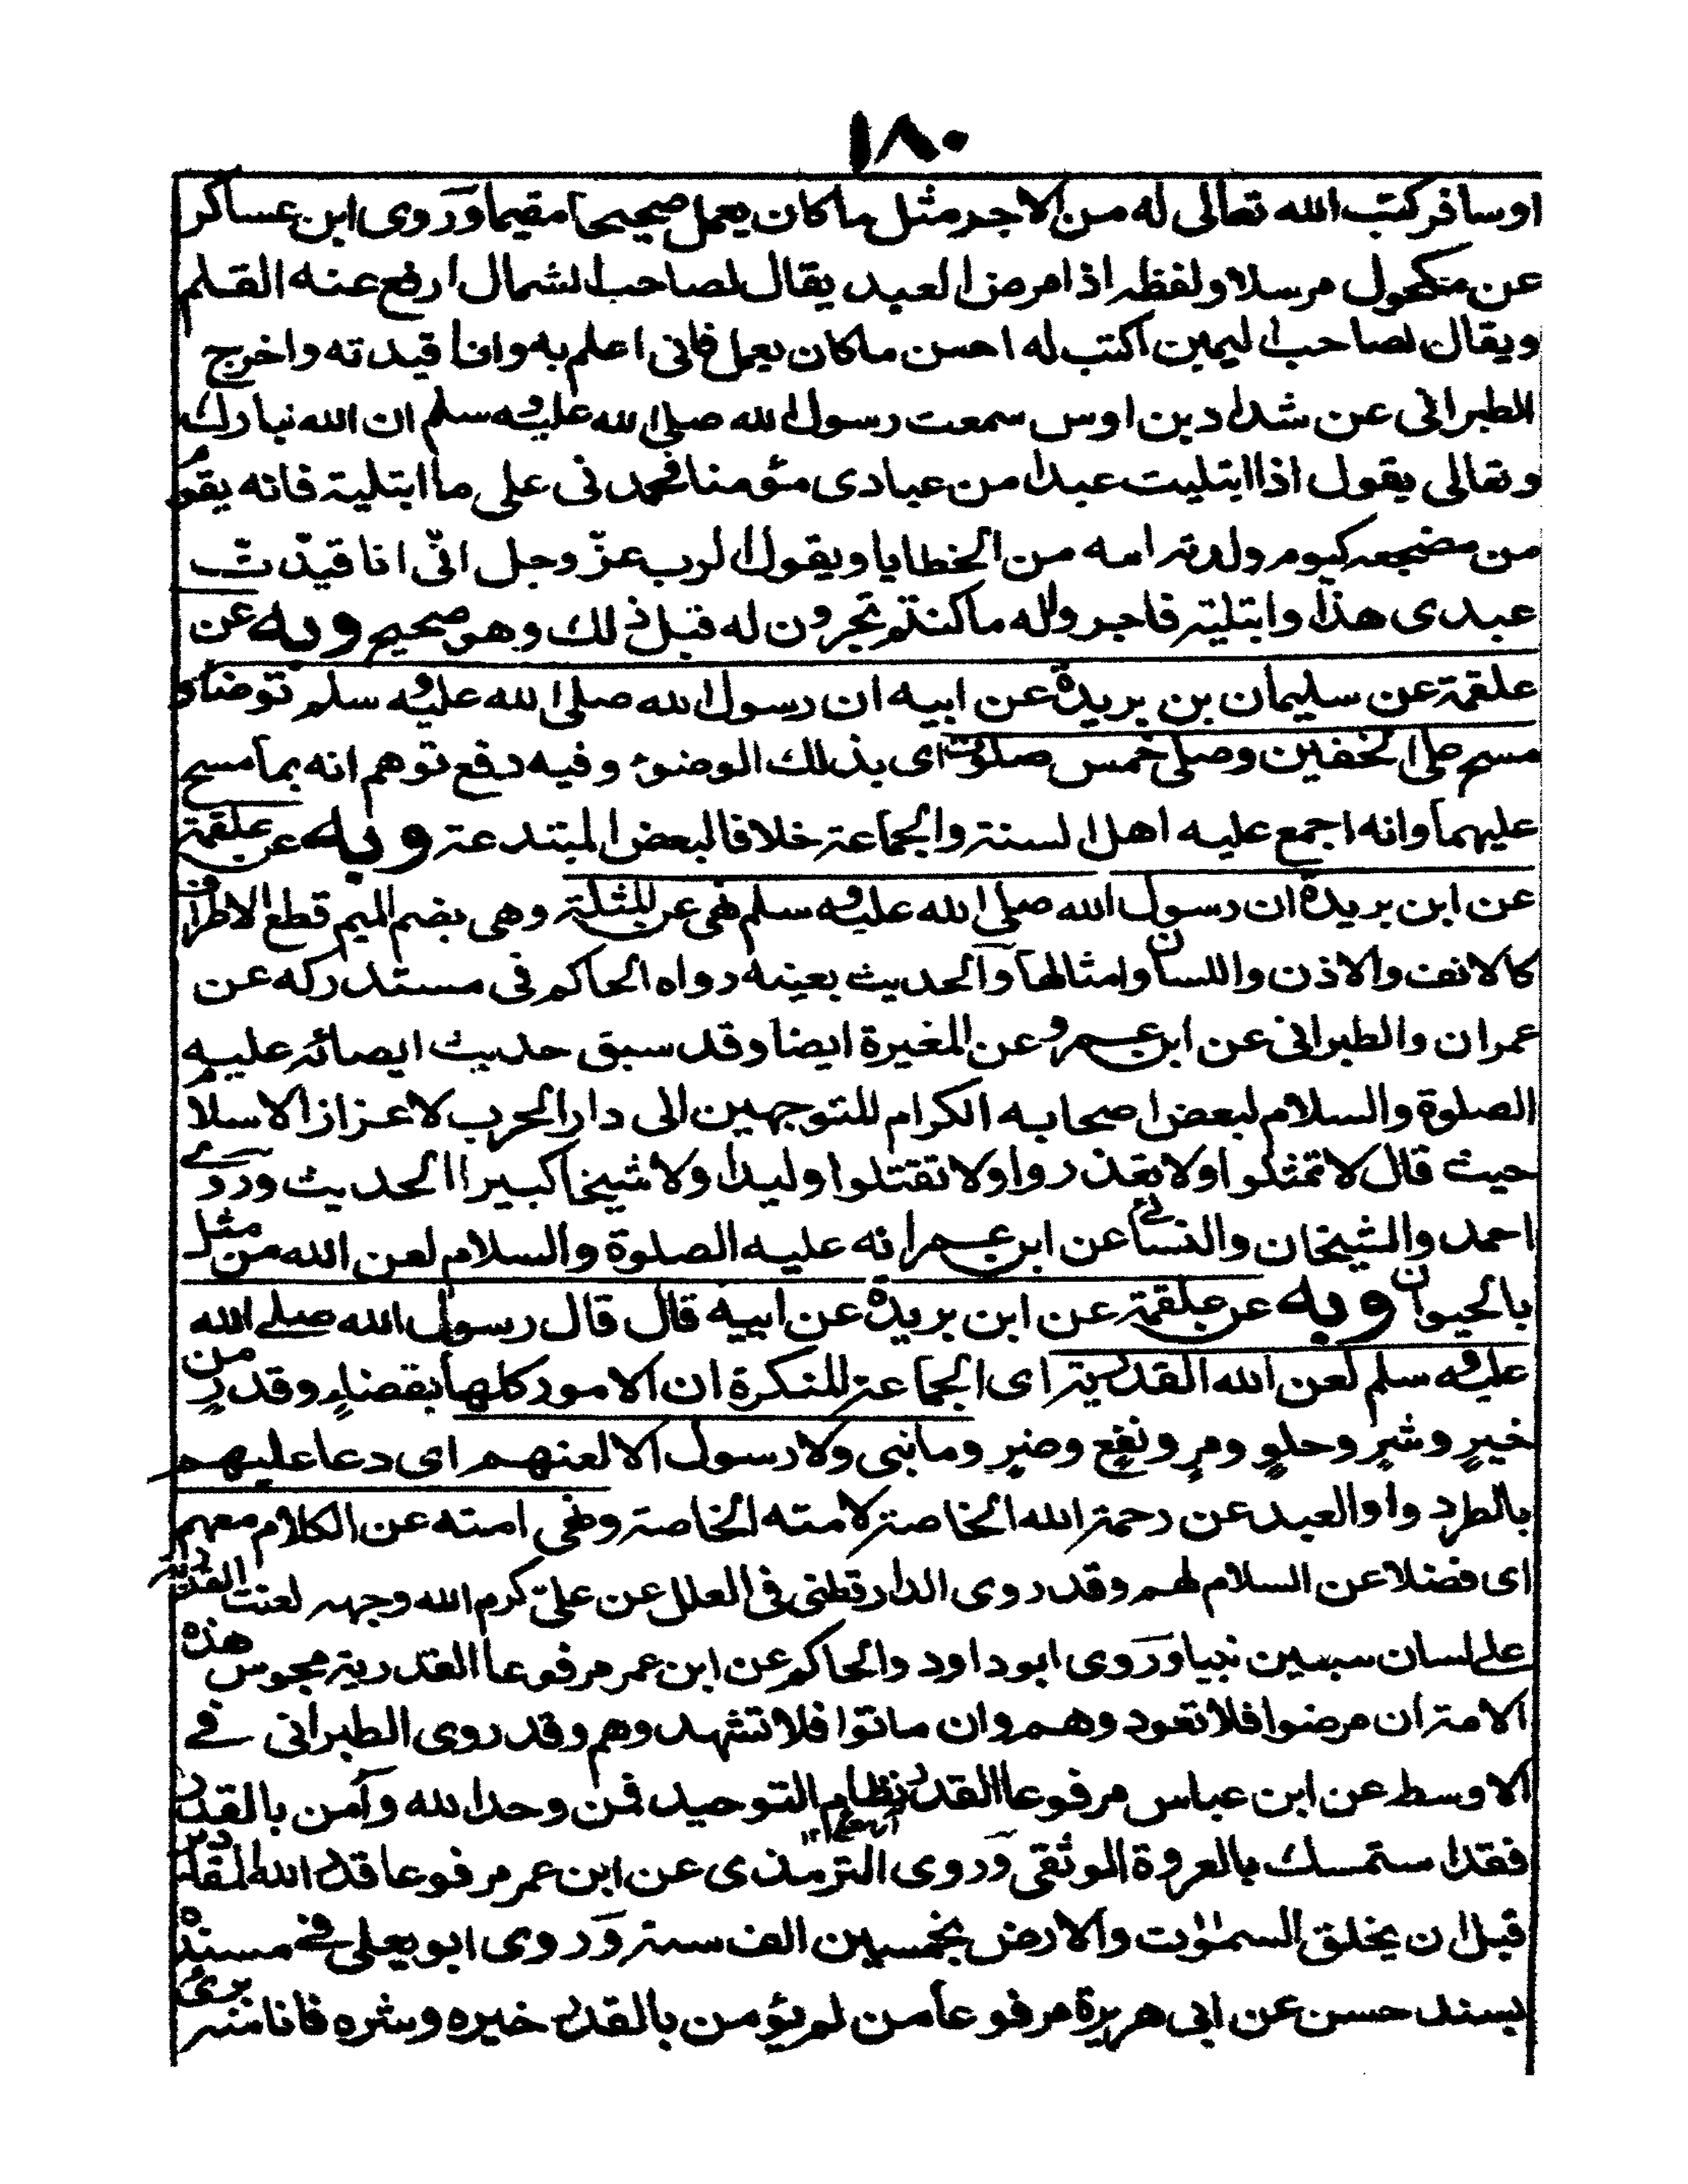 ١٨٠
او سافر كتب الله تعالى له من الاجر مثل ما كان يعمل صحيحا مقيما وروى ابن عساكر
عن مكحول مرسلا ولفظه اذا مرض العبد يقال لصاحب الشمال ارفع عنه القلم
ويقال لصاحب اليمين اكتب له احسن ما كان يعمل فانى اعلم به وانا قيدته واخرج
الطبرانى عن شداد بن اوس سمعت رسول الله صلى الله عليه وسلم ان الله تبارك
وتعالى يقول اذا ابتليت عبدا من عبادى مؤمنا فحمدنى على ما ابتليته فانه يقوم
من مضجعه كيوم ولدته امه من الخطايا ويقول الرب عزّ وجل انّى انا قيّدتّ
عبدى هذا وابتليته فاجروا له ما كنتم تجرون له قبل ذلك وهو صحيح وبه عن
علقمة عن سليمان بن بريدة عن ابيه ان رسول الله صلى الله عليه وسلم توضأ و
مسح على الخفين وصلى خمس صلوت اى بذلك الوضوء وفيه دفع توهم انه بما مسح
عليهما وانه اجمع عليه اهل السنة والجماعة خلافا لبعض المبتدعة وبه عن علقمة
عن ابن بريدة ان رسول الله صلى الله عليه وسلم نهى عن المثلة وهى بضم الميم قطع الاطراف
كالانف والاذن واللسان وامثالها والحديث بعينه رواه الحاكم فى مستدركه عن
عمران والطبرانى عن ابن عمرو عن المغيرة ايضا وقد سبق حديث ايصائه عليه
الصلوة والسلام لبعض اصحابه الكرام للتوجهين الى دار الحرب لاعزاز الاسلام
حيث قال لا تمثلوا ولا تغدروا ولا تقتلوا وليدا ولا شيخا كبيرا الحديث وروى
احمد والشيخان والنسائى عن ابن عمر انه عليه الصلوة والسلام لعن الله من مثل
بالحيوان وبه عن علقمة عن ابن بريدة عن ابيه قال قال رسول الله صلى الله
عليه وسلم لعن الله القدرية اى الجماعة المنكرة ان الامور كلها بقضاءٍ وقدرٍ من
خيرٍ وشرٍ وحلوٍ ومرٍ ونفعٍ وضرٍ وما نبى ولا رسول الا لعنهم اى دعا عليهم
بالطرد واوالعبد عن رحمة الله الخاصة لامته الخاصة ونهى امته عن الكلام معهم
اى فضلا عن السلام لهم وقد روى الدارقطنى فى العلل عن علىّ كرم الله وجهه لعنت القدرية
على لسان سبعين نبيا وروى ابو داود والحاكم عن ابن عمر مرفوعا القدرية مجوس هذه
الامة ان مرضوا فلا تعودوهم وان ماتوا فلا تشهدوهم وقد روى الطبرانى فى
الاوسط عن ابن عباس مرفوعا القدر نظام التوحيد فمن وحد الله وآمن بالقدر
فقد استمسك بالعروة الوثقى وروى الترمذى عن ابن عمر مرفوعا قدر الله المقادير
قبل ان يخلق السموت والارض بخمسين الف سنة وروى ابو يعلى فى مسنده
بسند حسن عن ابى هريرة مرفوعا من لم يؤمن بالقدر خيره وشره فانا منه برىء